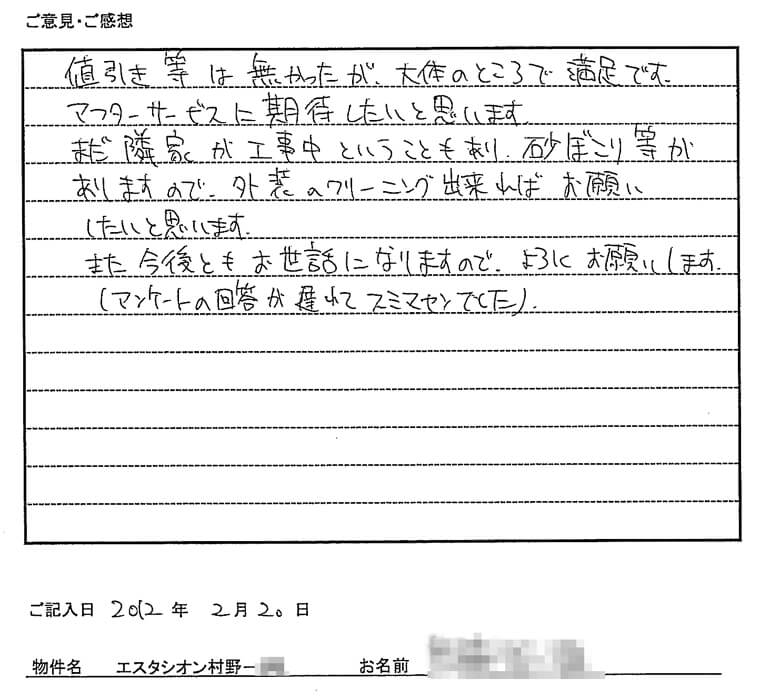 ご意見・ご感想
値引き等は無かったが、大体のところで満足です。
アフターサービスに期待したいと思います。
まだ隣家が工事中ということもあり、砂ぼこり等が
ありますので、外装のクリーニング出来ればお願い
したいと思います。
また今後ともお世話になりますので、よろしくお願いします。
(アンケートの回答が遅れてスミマセンでした)。
ご記入日 2012年 2月20日
物件名 エスタシオン村野一
お名前